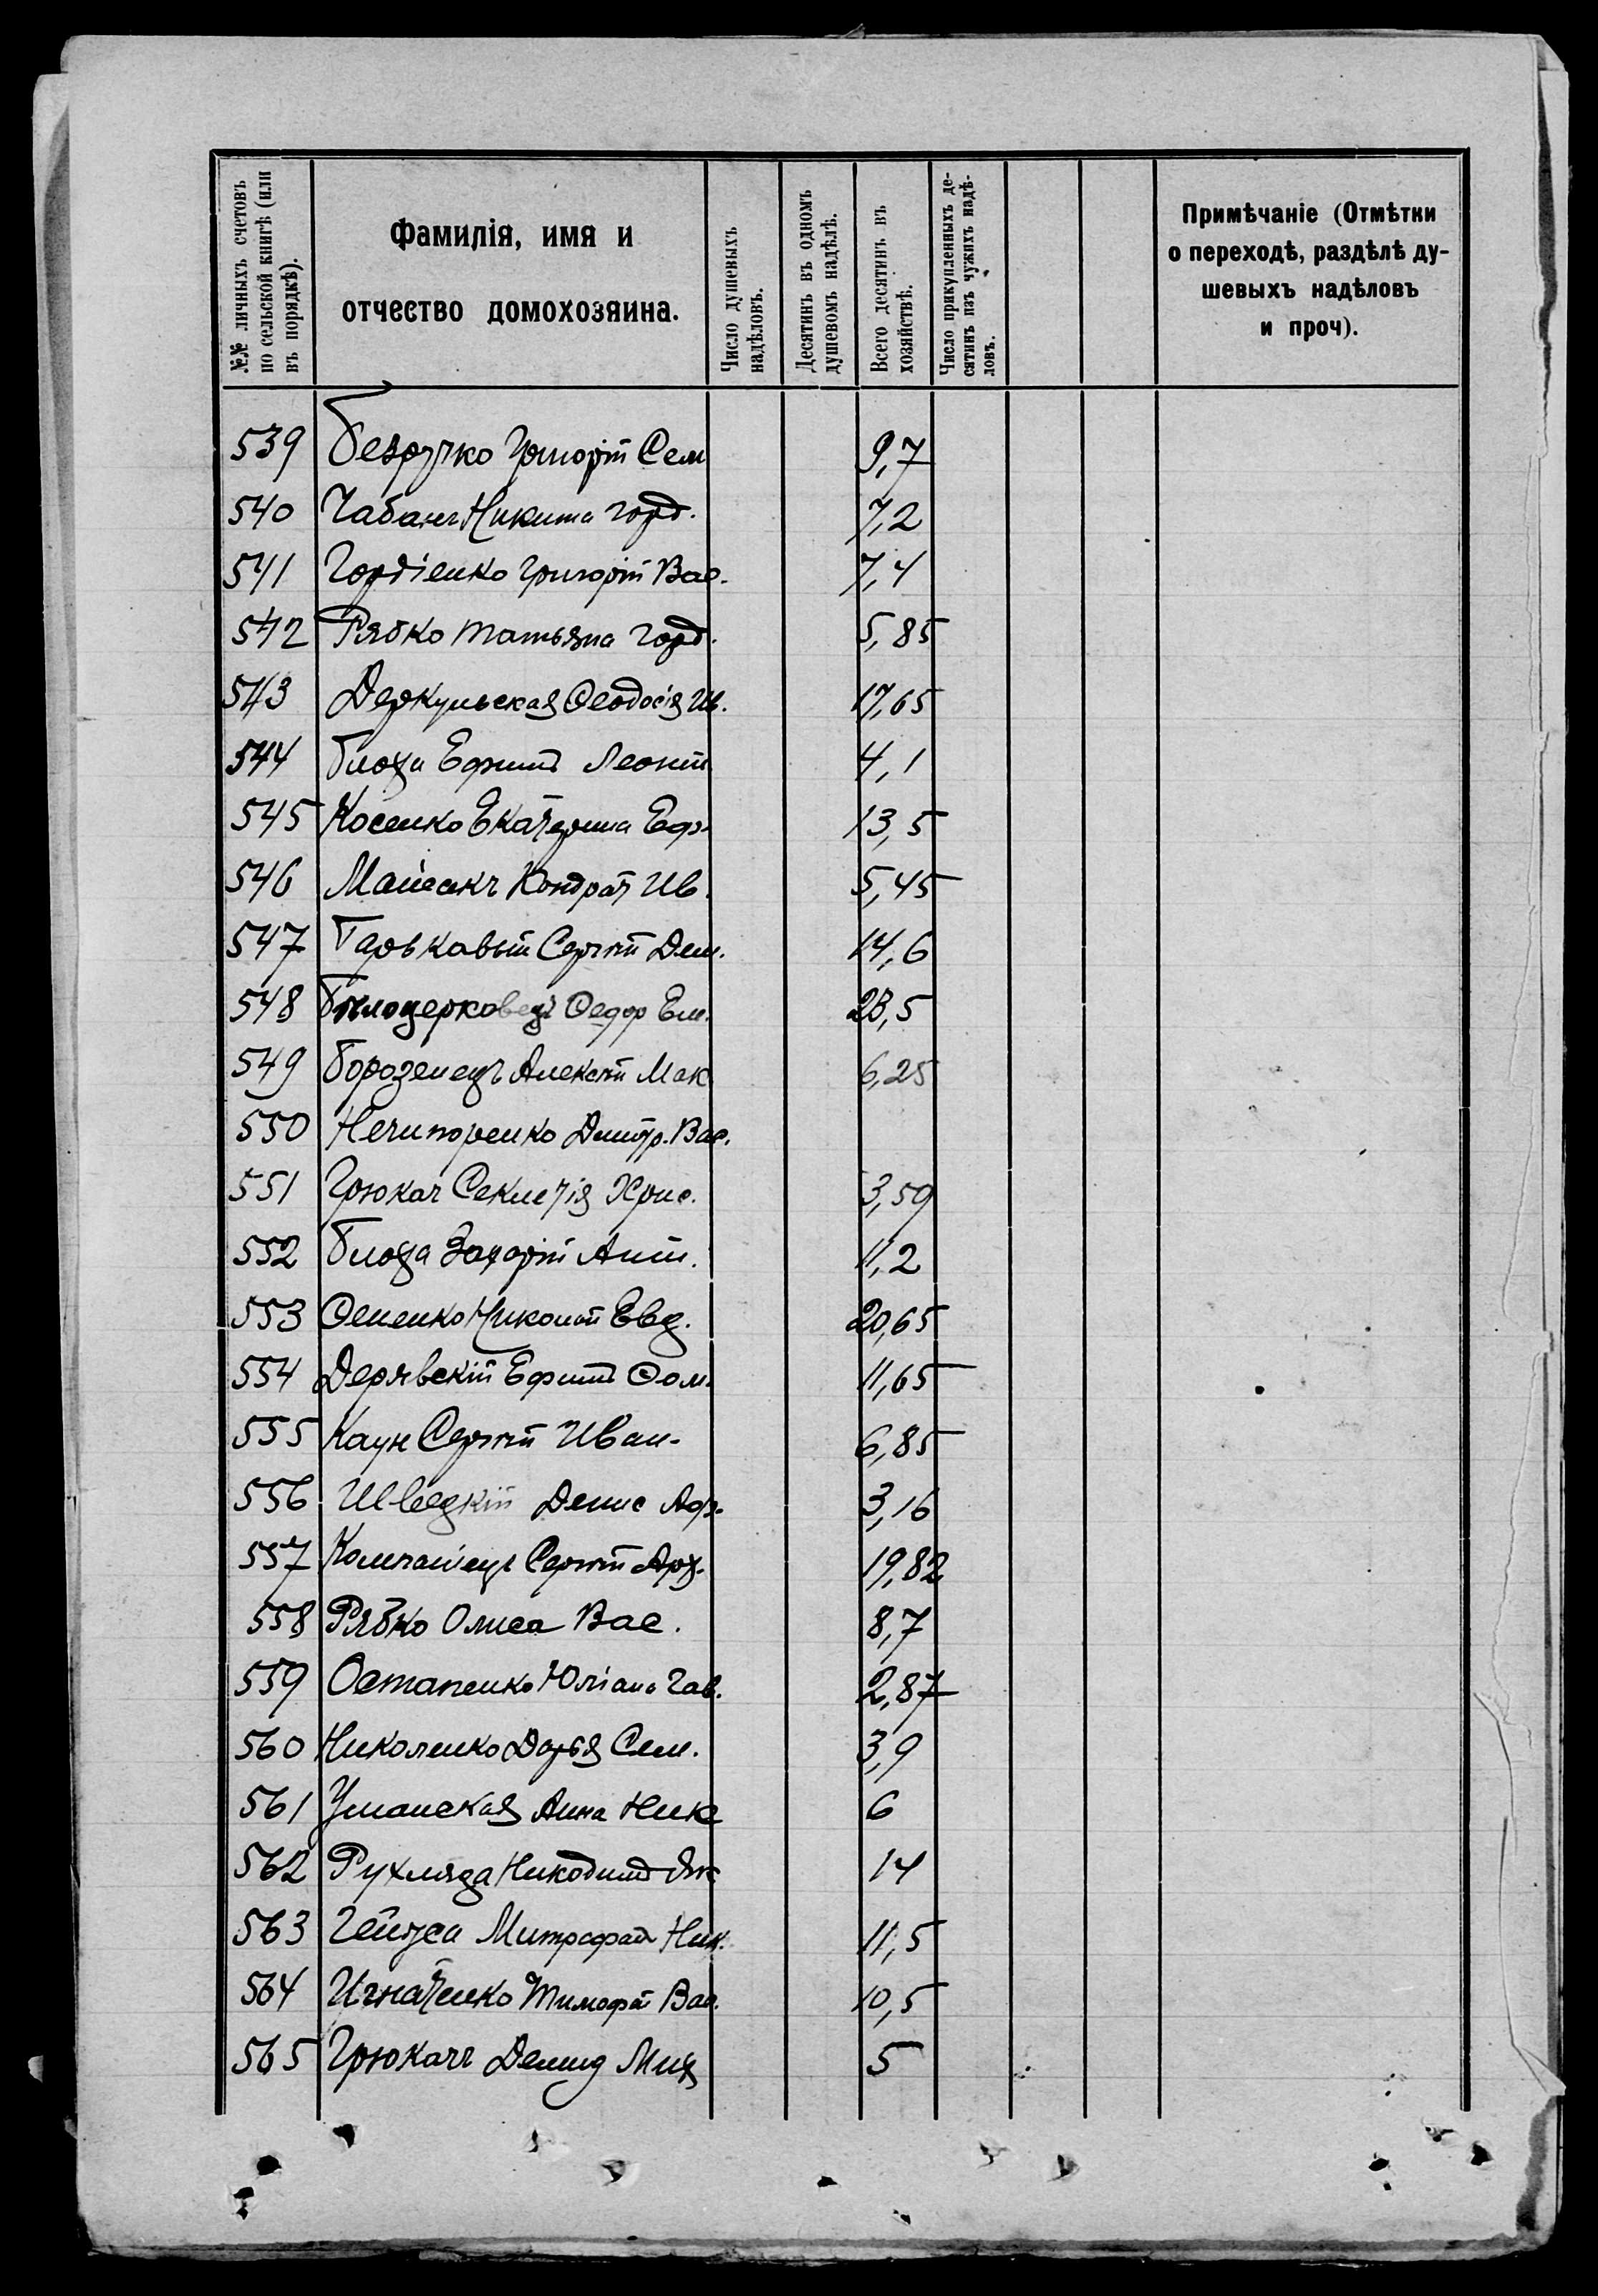 №№ личныхъ счетовъ
по сельской книгѣ (или
въ порядкѣ).
Фамилія, имя и
отчество домохозяина.
Число душевыхъ
надѣловъ.
Десятинъ въ одномъ
душевомъ надѣлѣ.
Всего десятинъ въ
хозяйствѣ.
Число прикупленныхъ де-
сятинъ изъ чужихъ надѣ-
ловъ.
Примѣчаніе (Отмѣтки
о переходѣ, раздѣлѣ ду-
шевыхъ надѣловъ
и проч).
539 Безручко Григорій Сем 9,7
540 Чабанъ Никита Горд. 7,2
541 Гордіенко Григорій Вас. 7,4
542 Рябко Татьяна Горд. 5,85
543 Деркульская Ѳеодосія Ив. 17,65
544 Блоха Ефимъ Леонт 4,1
545 Косенко Екатерина Еф. 13,5
546 Кондрат Ив. 5,45
547 Гарькавый Сергѣй Дем. 14,6
548 Бѣлоцерковецъ Ѳедор Ем. 23,5
549 Борозенецъ Алексѣй Мак 6,25
550 Нечипоренко Дмитр. Вас.
551 Грюкач Секлетія Хрис. 3,59
552 Блоха Захарій Ант. 11,2
553 Николай Евд. 20,65
554 Ефимъ Ѳом. 11,65
555 Каун Сергѣй Иван. 6,85
556 Шведкій Денис Аф. 3,16
557 Компанѣецъ Сергѣй Арх. 19,82
558 Рябко Олиса Вас. 8,7
559 Остапенко Юліана Гав. 2,87
560 Николенко Дарья Сем. 3,9
561 Уманская Анна Ник 6
562 Рухляда Никодимъ Як 14
563 Митрофан Ник. 11,5
564 Игнатенко Тимофѣй Вас. 10,5
565 Грюкачъ Демид Мих 5